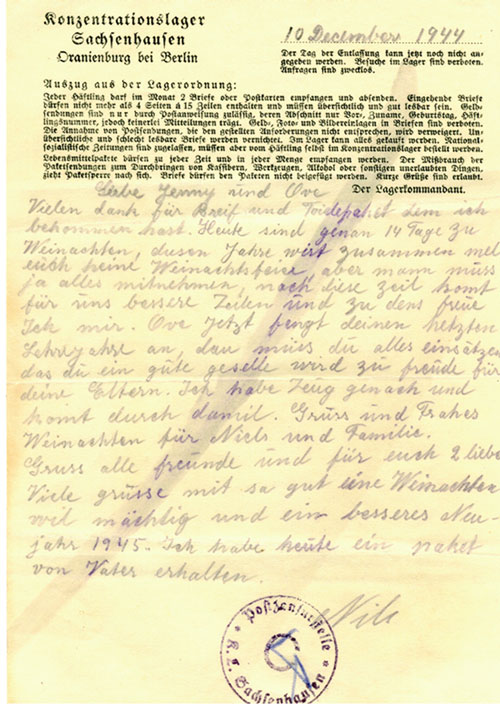 Konzentrationslager
Sachsenhausen
Oranienburg bei Berlin
10 December 1944
Der Tag der Entlassung kann jetzt noch nicht an-
gegeben werden. Besuche im Lager sind verboten.
Anfragen sind zwecklos.
Auszug aus der Lagerordnung:
Jeder Häftling darf im Monat 2 Briefe oder Postkarten empfangen und absenden. Eingehende Briefe
dürfen nicht mehr als 4 Seiten á 15 Zeilen enthalten und müssen übersichtlich und gut lesbar sein. Geld-
sendungen sind nur durch Postanweisung zulässig, deren Abschnitt nur Vor-, Zuname, Geburtstag, Häft-
lingsnummer, jedoch keinerlei Mitteilungen trägt. Geld, Fotos und Bildereinlagen in Briefen sind verboten.
Die Annahme von Postsendungen, die den gestellten Anforderungen nicht entsprechen, wird verweigert. Un-
übersichtliche und schlecht lesbare Briefe werden vernichtet. Im Lager kann alles gekauft werden. National-
sozialistische Zeitungen sind zugelassen, müssen aber vom Häftling selbst im Konzentrationslager bestellt werden.
Lebensmittelpakete dürfen zu jeder Zeit und in jeder Menge empfangen werden. Der Mißbrauch der
Paketsendungen zum Durchbringen von Kassibern, Werkzeugen, Alkohol oder sonstigen unerlaubten Dingen,
zieht Paketsperre nach sich. Briefe dürfen den Paketen nicht beigefügt werden. Kurze Grüße sind erlaubt.
Der Lagerkommandant.
Liebe Jenny und Ove
Vielen dank für Breif und dem ich
bekommen hast. Heute sind genau 14 Tage zu
Weinachten, diesen Jahre wirt zusammen mel
euch keine Weinachtsfeire, aber mann muss
ja alles mitnehmen, nach diese zeit komt
für uns bessere Zeiten und zu dens freue
Ich mir. Ove Jetzt fengt deinen letzten
Lehrejahre an, dau müss du alles einsätzen
das du ein güte geselle wird zu freude für
deine Eltern. Ich habe Zeug genach und
komt durch damit. Gruss und Frohes
Weinachten für Niels und Familie.
Gruss alle freunde und für euch 2 liebe
Viele grüsse mit sa gut eine Weinachten
wil mächtig und ein besseres Neu-
jahr 1945. Ich habe heute ein paket
von Vater erhalten.
Nils
Postzensurstelle
K.L. Sachsenhausen